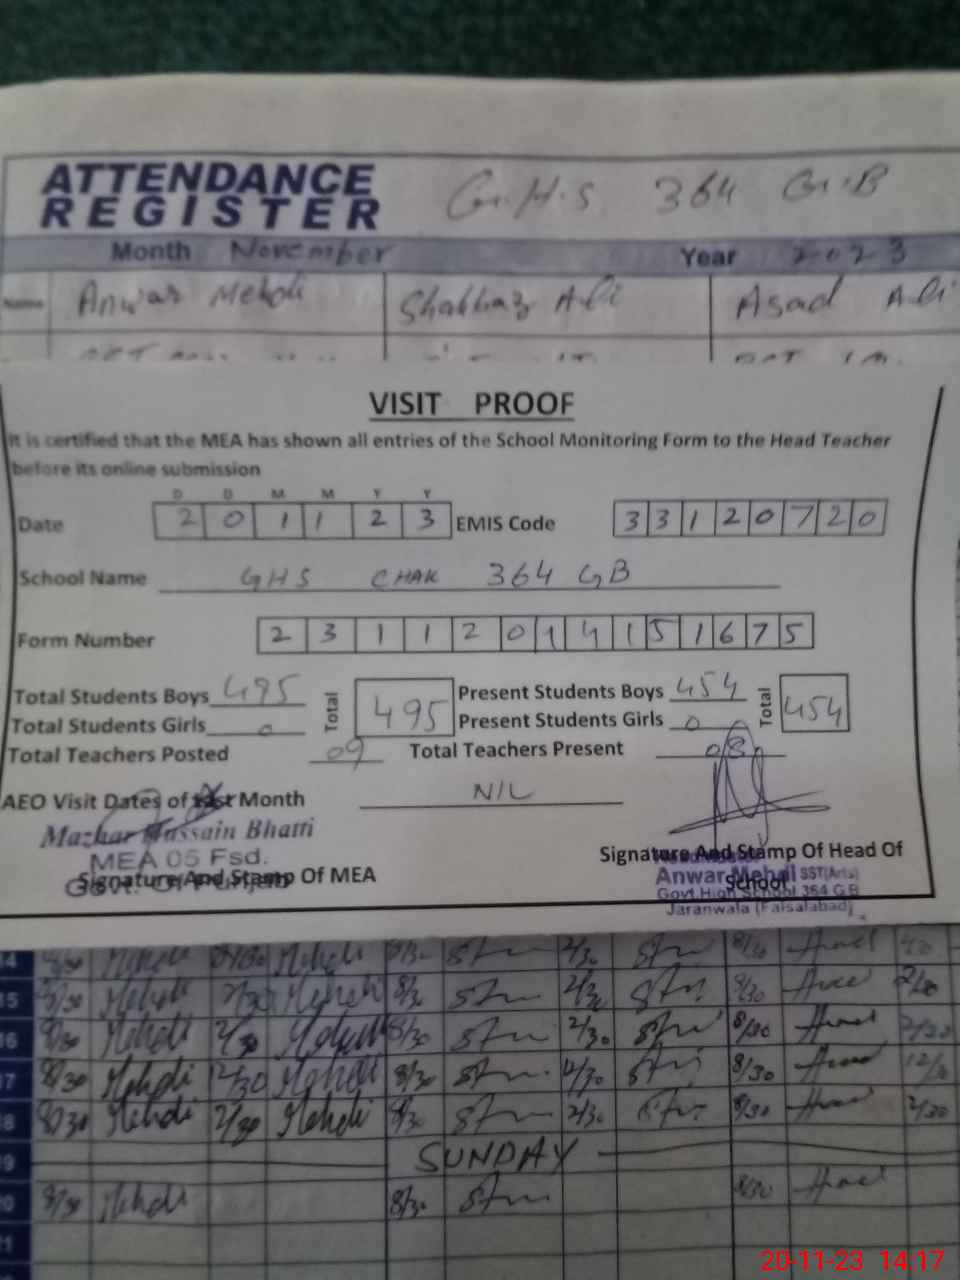 ATTENDANCE
REGISTER
G.H.S 364 G.B
Month November Year 2023
Name Anwar Mehdi Shahbaz Ali Asad Ali
VISIT PROOF
It is certified that the MEA has shown all entries of the School Monitoring Form to the Head Teacher
before its online submission
D D M M Y Y
Date 2 0 1 1 2 3 EMIS Code 3 3 1 2 0 7 2 0
School Name GHS CHAK 364 GB
Form Number 2 3 1 1 2 0 1 4 1 5 1 6 7 5
Total Students Boys 495 Total 495 Present Students Boys 454 Total 454
Total Students Girls 0 Present Students Girls 0
Total Teachers Posted 09 Total Teachers Present 08
AEO Visit Dates of Last Month NIL
Mazhar Hussain Bhatti
MEA 05 Fsd.
Signature And Stamp Of MEA
Signature And Stamp Of Head Of
School
Anwar Mehdi SST(Arts)
Govt. High School 364 G B
Jaranwala (Faisalabad)
8/30 Mehdi 2/30 Mehdi 8/30 2/30 8/30
8/30 Mehdi 2/30 Mehdi 8/30 8/30
8/30 Mehdi 2/30 Mehdi 8/30 2/30 8/30
8/30 Mehdi 12/30 Mehdi 8/30 8/30
8/30 Mehdi 2/30 Mehdi 8/30 2/30 8/30 2/30
SUNDAY
8/30 Mehdi 8/30 8/30
20-11-23 14:17